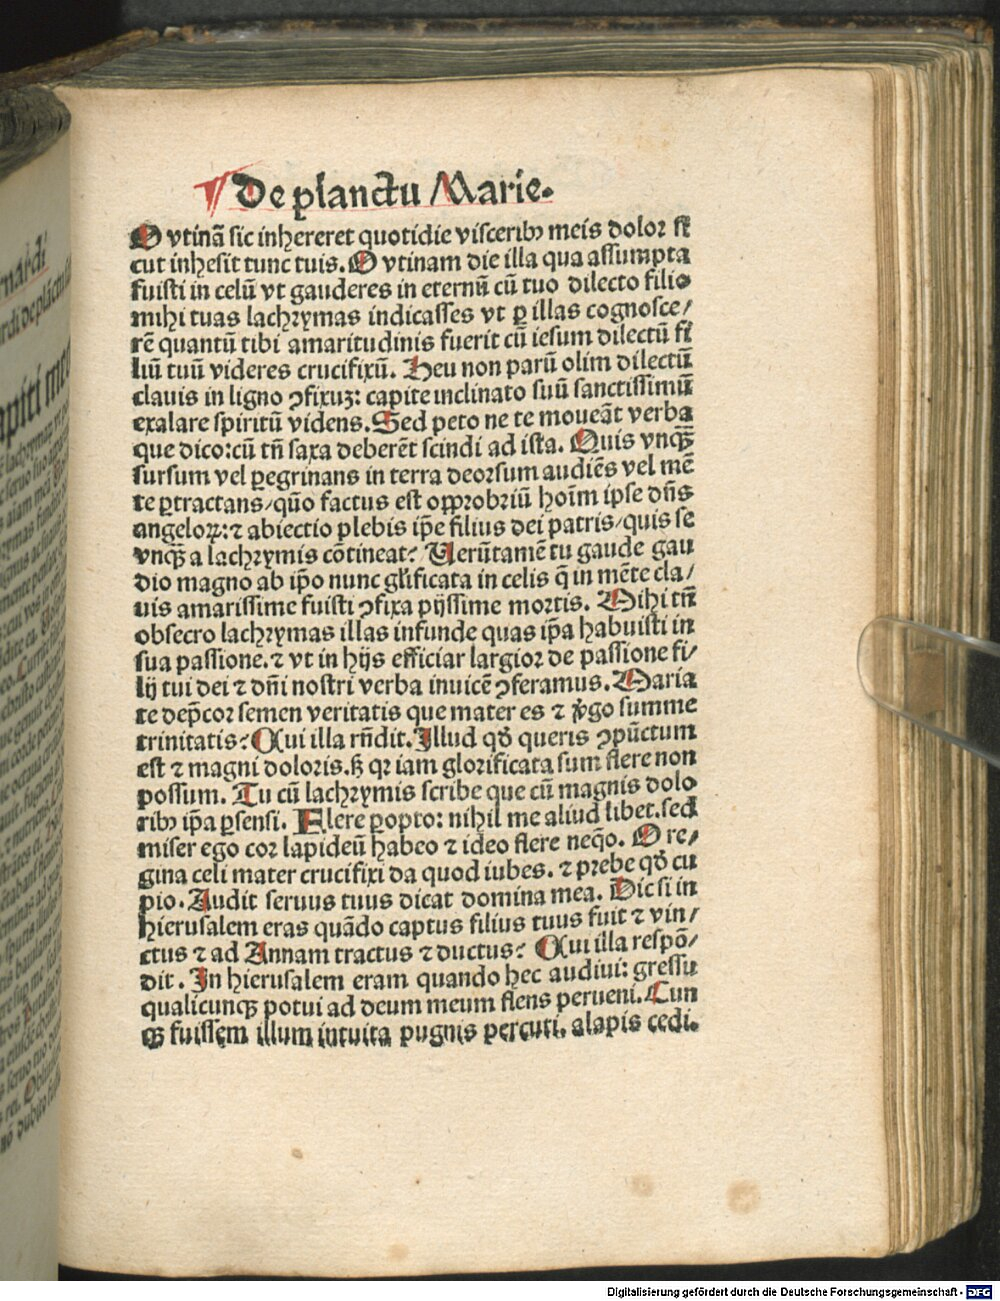 De planctu Marie.
O vtinā sic inhereret quotidie visceribꝰ meis dolor si
cut inhesit tunc tuis. O vtinam die illa qua assumpta
fuisti in celū vt gauderes in eternū cū tuo dilecto filio
mihi tuas lachrymas indicasses vt ꝑ illas cognosce/
rē quantū tibi amaritudinis fuerit cū iesum dilectū fi
liū tuū videres crucifixū. Heu non parū olim dilectū
clauis in ligno ꝯfixuꝫ: capite inclinato suū sanctissimū
exalare spiritū videns. Sed peto ne te moueāt verba
que dico: cū tñ saxa deberēt scindi ad ista. Quis vnqꝫ̄
sursum vel ꝑegrinans in terra deorsum audiēs vel mē
te ꝑtractans/ quō factus est opprobriū hoīm ipse dñs
angeloꝝ: ⁊ abiectio plebis ip̄e filius dei patris/ quis se
vnqꝫ̄ a lachrymis cōtineat? Uerūtamē tu gaude gau
dio magno ab ip̄o nunc glīficata in celis q̄ in mēte cla/
uis amarissime fuisti ꝯfixa pijssime mortis. Mihi tñ
obsecro lachrymas illas infunde quas ip̄a habuisti in
sua passione. ⁊ vt in hijs efficiar largior de passione fi/
lij tui dei ⁊ dñi nostri verba inuicē ꝯferamus. Maria
te dep̄cor semen veritatis que mater es ⁊ v̊go summe
trinitatis? Qui illa rñdit. Illud qđ queris ꝯpūctum
est ⁊ magni doloris. sꝫ qꝛ iam glorificata sum flere non
possum. Tu cū lachrymis scribe que cū magnis dolo
ribꝰ ip̄a ꝑsensi. Flere ꝑopto: nihil me aliud libet. sed
miser ego cor lapideū habeo ⁊ ideo flere neqō. O re/
gina celi mater crucifixi da quod iubes. ⁊ prebe qđ cu
pio. Audit seruus tuus dicat domina mea. Dic si in
hierusalem eras quādo captus filius tuus fuit ⁊ vin/
ctus ⁊ ad Annam tractus ⁊ ductus? Qui illa respō/
dit. In hierusalem eram quando hec audiui: gressu
qualicunqꝫ potui ad deum meum flens perueni. Cun
qꝫ fuissem illum intuita pugnis percuti. alapis cedi.
Digitalisierung gefördert durch die Deutsche Forschungsgemeinschaft - DFG